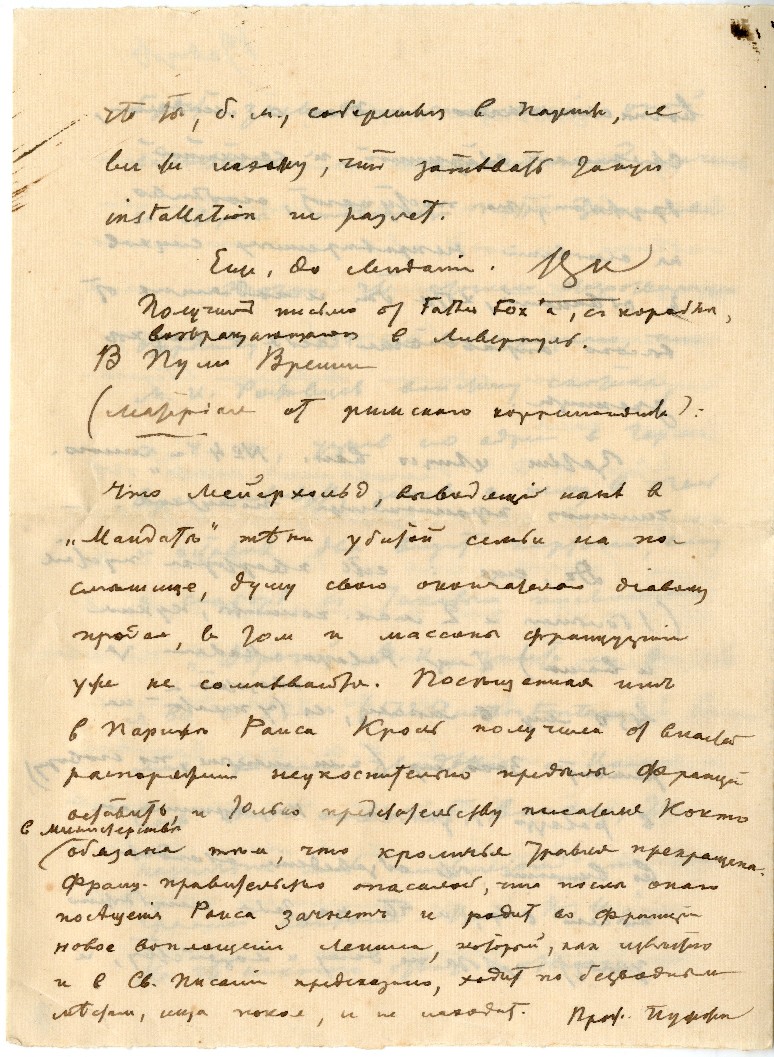 что ты, б. м., соберешься в Париж, я
вы не нахожу, что затевать такую
installation не разлет.
Еще, до свиданiя.
Получил письмо от Father Fox'a, съ корабля,
возвращающагося в Ливерпуль.
В Пули Времени
(Матерiал от римского корреспондента):
Что Мейерхольд, выводящiй ныне в
„Мандатъ" тѣни убитой семьи на по-
смѣшище, душу свою окончательно дiаволу
продал, в том и массоны французскiе
уже не сомнѣваются. Посѣщенная имъ
в Парижѣ Раиса Кроль получила от властей
распоряженiе неукоснительно предѣлы Францiи
оставить, и только предстательству писателя Кокто
в министерствѣ
обязана тѣм, что кроличья травля прекращена.
Франц. правительство опасалось, что послѣ онаго
посѣщенiя Раиса зачнетъ и родит во Францiи
новое воплощенiе Ленина, который, как извѣстно
и в Св. Писанiи предсказано, ходит по безводным
мѣстам, ища покоя, и не находит. Проф.